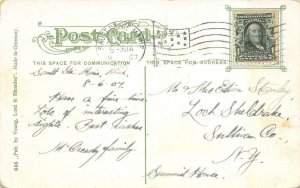 Post Card
THIS SPACE FOR COMMUNICATION
THIS SPACE FOR ADDRESS
5-30A
07
Sault Ste Marie, Mich.
8-6.07.
Having a fine time.
Lots of interesting
sights. Best wishes
McCready family
Mr & Mrs Edwin Stanley
Loch Sheldrake
Sullivan Co.
N.Y.
Summit House.
688 "Pub. by Young, Lord & Rhoades", Made in Germany